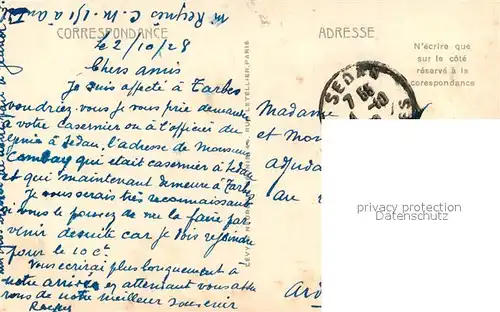 CORRESPONDANCE
le 2/10/28
Chers amis
Je suis affecté à Tarbes
voudriez vous je vous prie demander
à votre casernier ou à l'officier du
génie à Sedan, l'adresse de Monsieur
Combay qui était casernier à Sedan
et qui maintenant demeure à Tarbes
Je vous serais très reconnaissant
si vous le pouvez de me le faire par
venir de suite car je dois rejoindre
pour le 10 Ct
Vous écrirai plus longuement à
notre arrivée en attendant vous
rons de notre meilleur souvenir
ADRESSE
N'écrire que
sur le côté
réservé à la
corespondance
SEDAN
7
Madame
et Mon
adjuda
au
Ard
RUE LETELLIER, PARIS
privacy protection
Datenschutz